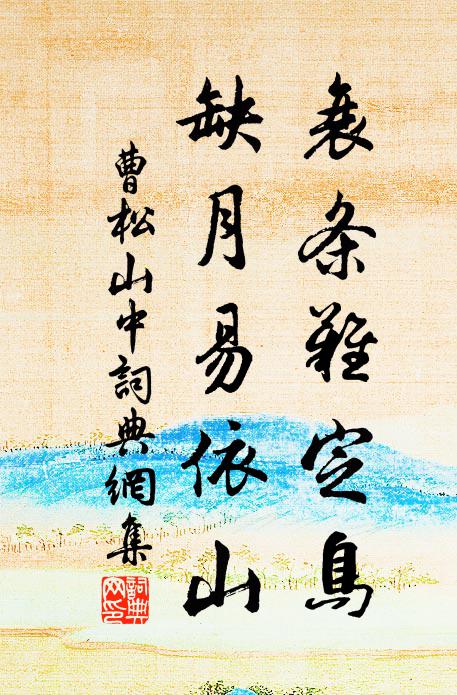 衰条難定鳥
缺月易依山
曹松山中詞典網集
詞典